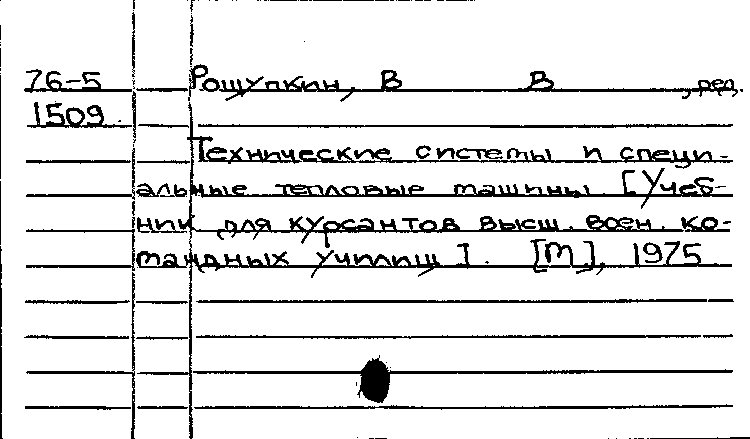 76-5 Рощупкин, В В , ред.
1509
Технические системы и специ-
альные тепловые машины [Учеб-
ник для курсантов высш. воен. ко-
мандных училищ]. [М], 1975.